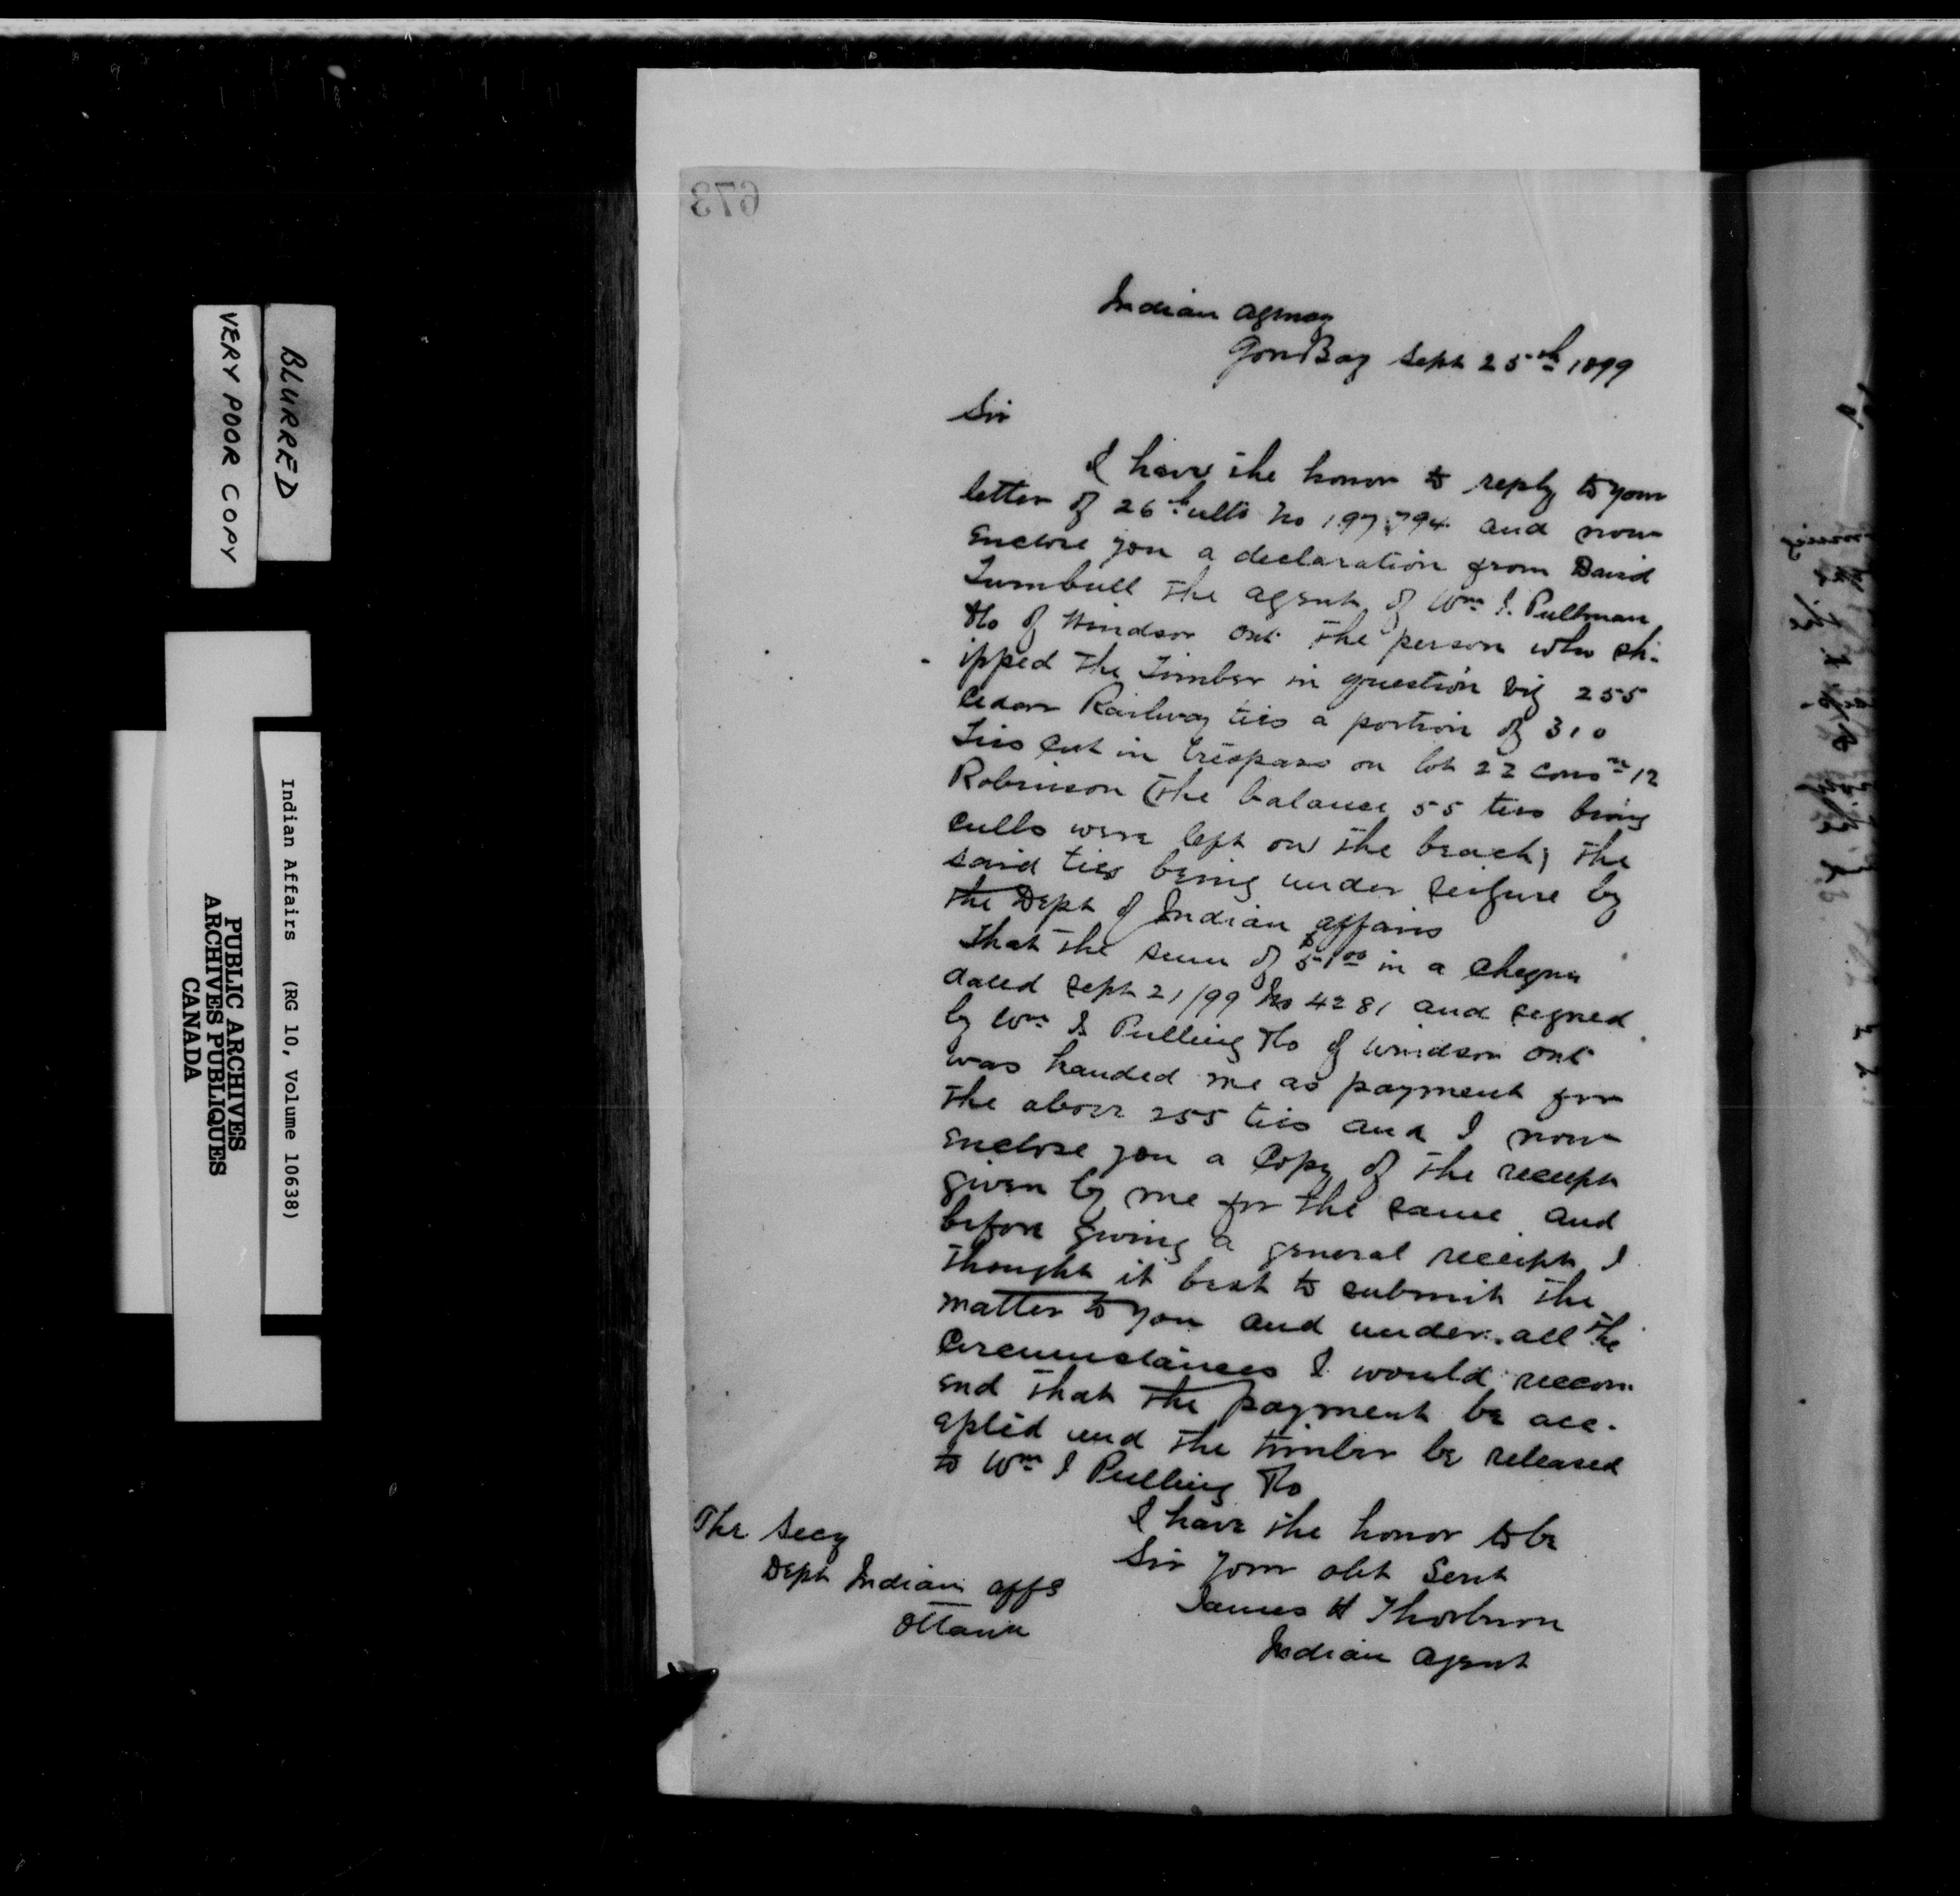 673
Indian Agency
Gore Bay Sept 25th 1899
Sir
I have the honor to reply to your
letter of 26th ulto No 197,794 and now
enclose you a declaration from David
Turnbull the agent of Wm I. Pullman
& Co of Windsor Ont the person who sh-
ipped the Timber in question viz 255
Cedar Railway ties a portion of 310
Ties Cut in trespass on lot 22 Consn 12
Robinson (the balance 55 ties being
culls were left on the beach) the
said ties being under seizure by
the Dept of Indian affairs
That the sum of $51.00 in a Cheque
dated Sept 21/99 No 4281 and signed
by Wm I Pulling & Co of Windsor Ont
was handed me as payment for
the above 255 ties and I now
enclose you a Copy of the receipt
given by me for the same and
before giving a general receipt I
thought it best to submit the
matter to you and under all the
Circumstances I would recom
end that the payment be acc-
epted and the timber be released
to Wm I Pulling & Co
I have the honor to be
Sir your obt Servt
James H Thorburn
Indian Agent
The Secy
Dept Indian affs
Ottawa
BLURRED
VERY POOR COPY
Indian Affairs (RG 10, Volume 10638)
PUBLIC ARCHIVES
ARCHIVES PUBLIQUES
CANADA